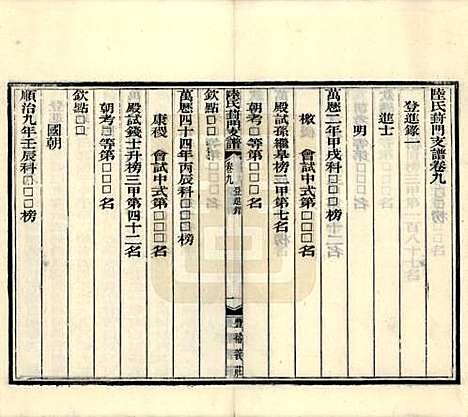 陸氏葑門支譜卷九
登進錄一
進士
明
萬曆二年甲戌科□□□榜
檄 會試中式第□□□名
殿試孫繼皋榜三甲第七名
朝考□等第□□□名
欽點□□
陸氏葑門支譜 卷九 登進錄 一 豐裕義莊
萬曆四十四年丙辰科□□□榜
康稷 會試中式第□□□名
殿試錢士升榜三甲第四十二名
朝考□等第□□□名
欽點□□
國朝
順治九年壬辰科□□□榜